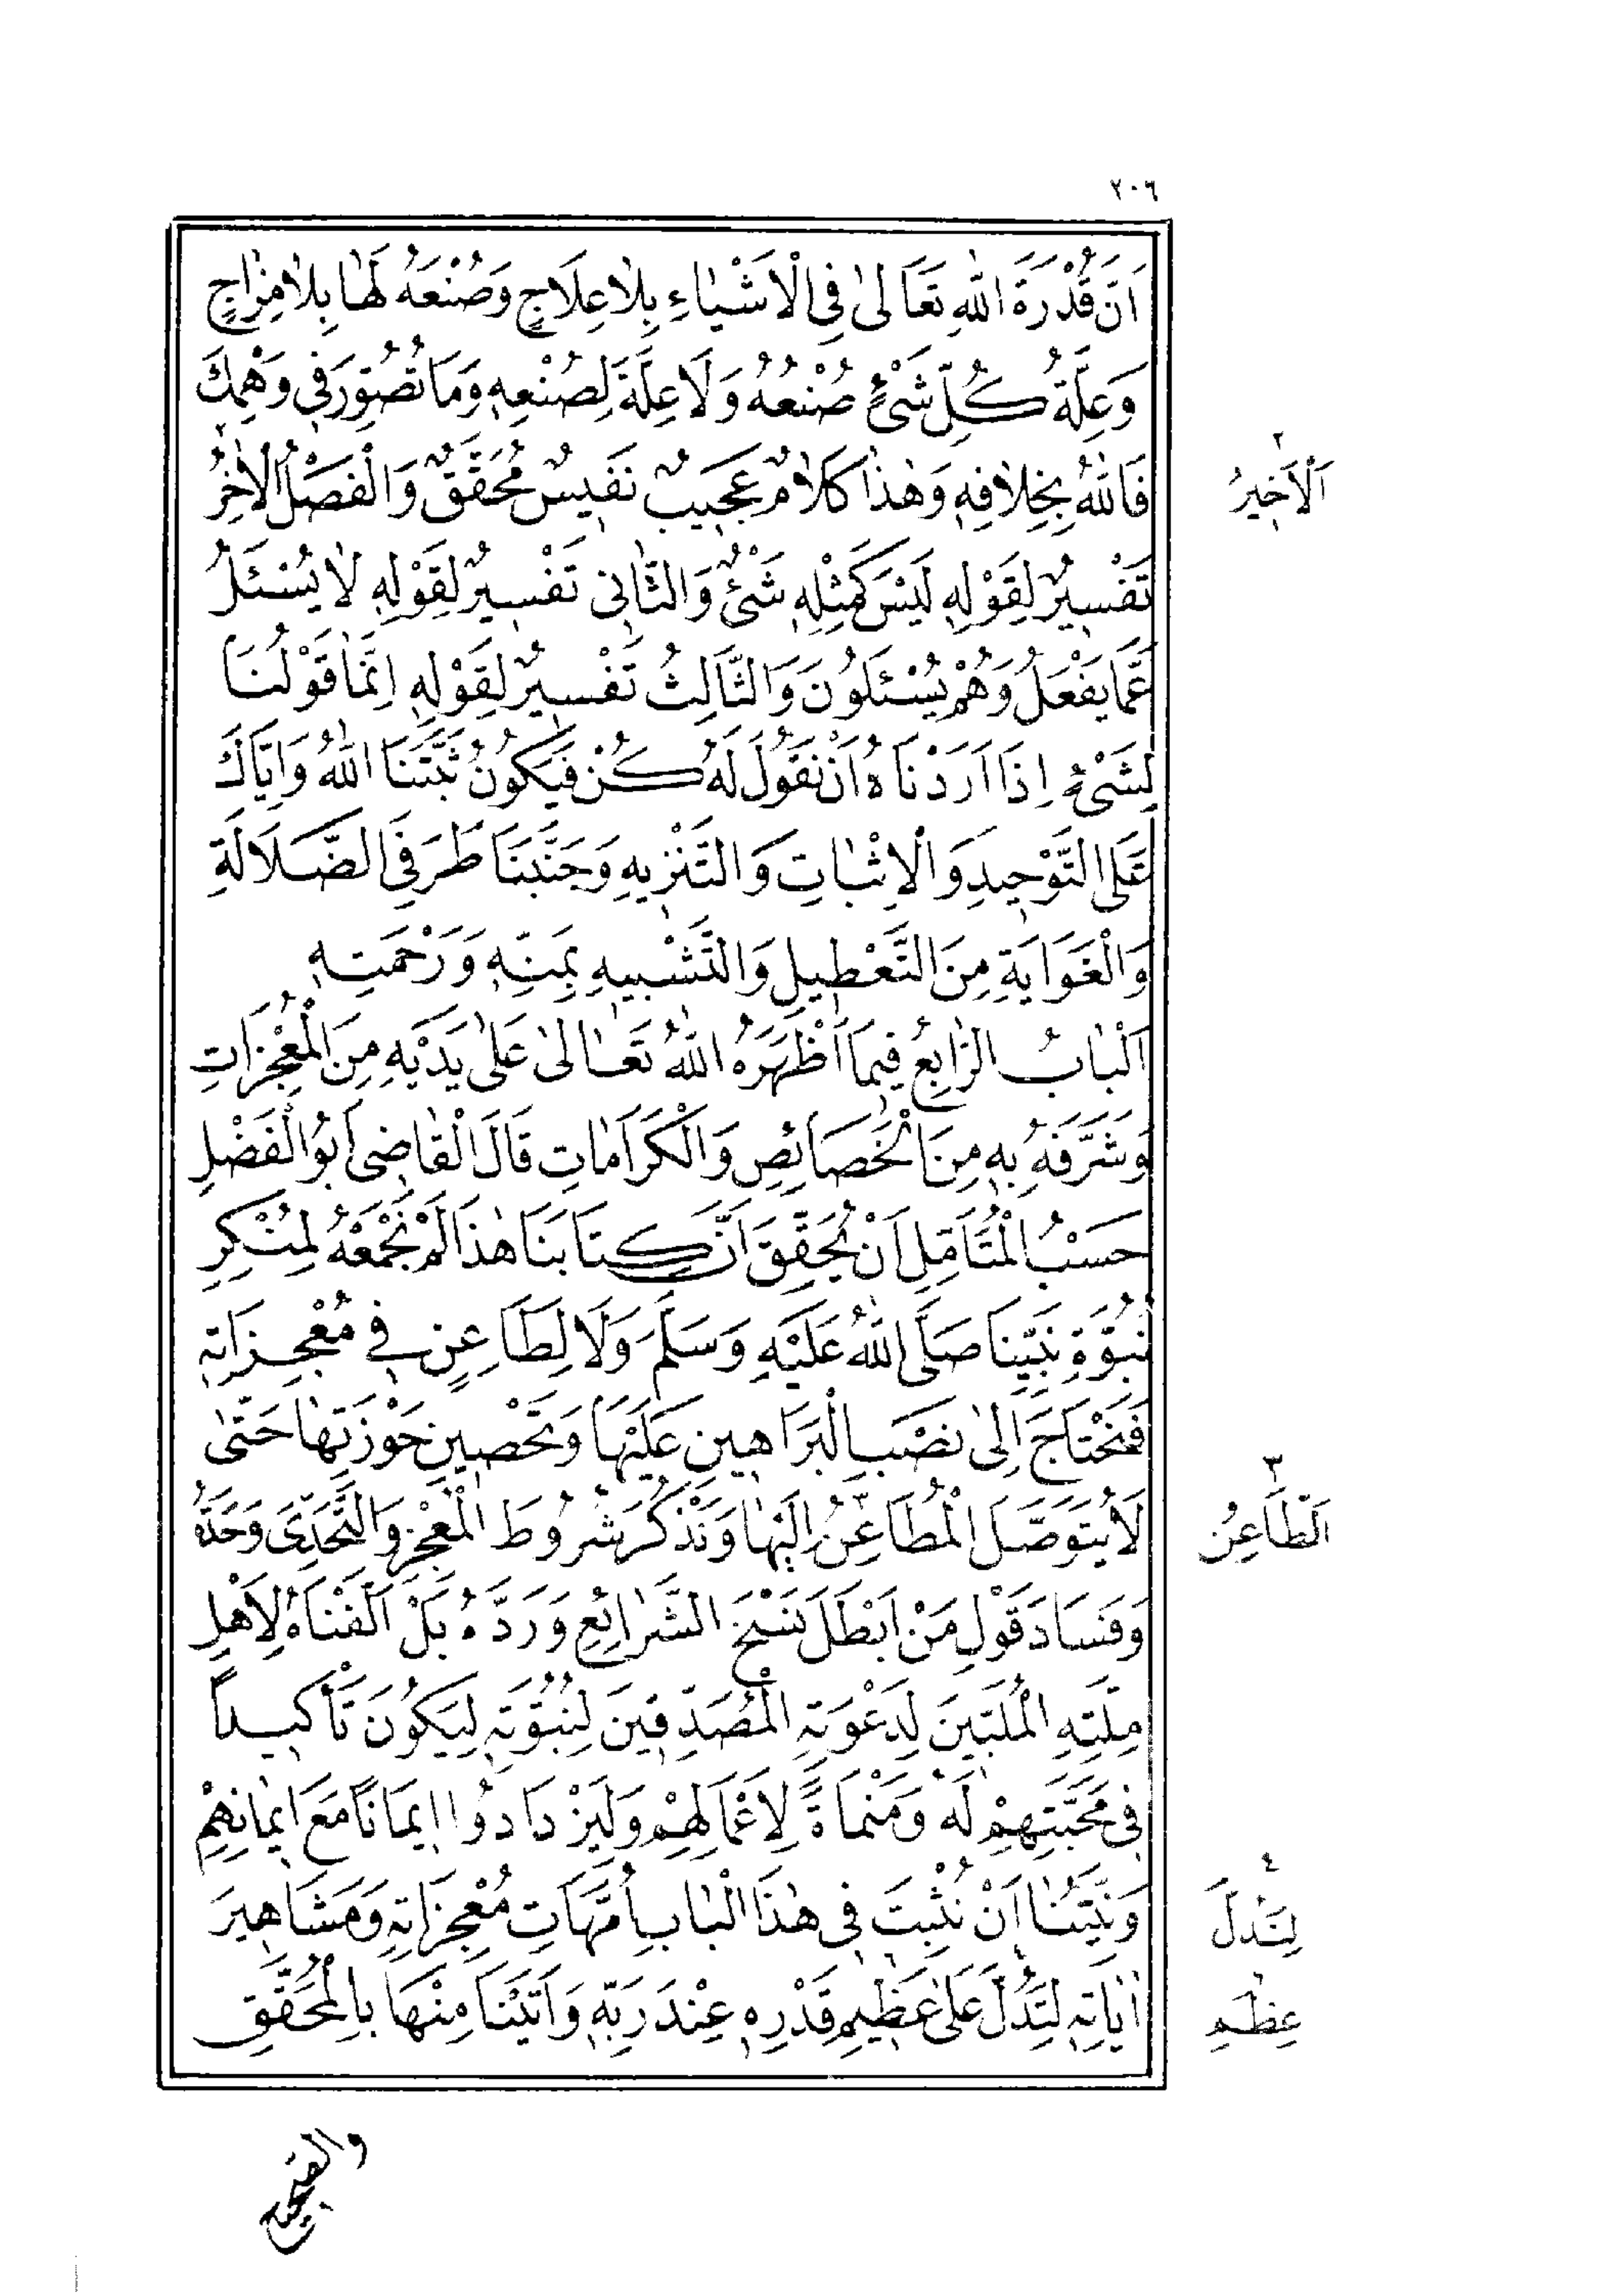 ٢٠٦
اَنَّ قُدْرَةَ اللّٰهِ تَعَالىٰ فِى الْاَشْيٰاءِ بِلاٰ عِلَاجٍ وَصُنْعَهُ لَهٰا بِلاٰ مِزٰاجٍ
وَعِلَّةُ كُلِّ شَىْءٍ صُنْعُهُ وَلَا عِلَّةَ لِصُنْعِهِ وَمَا تُصُوِّرَ فِى وَهْمِكَ
فَاللّٰهُ بِخِلاٰفِهِ وَهٰذٰا كَلاٰمٌ عَجِيبٌ نَفِيسٌ مُحَقَّقٌ وَالْفَصْلُ الْاٰخِرُ
اَلْاَخِيرُ ٢
تَفْسِيرٌ لِقَوْلِهِ لَيْسَ كَمِثْلِهِ شَىْءٌ وَالثَّانِى تَفْسِيرٌ لِقَوْلِهِ لاٰ يُسْـَٔلُ
عَمَّا يَفْعَلُ وَهُمْ يُسْـَٔلُونَ وَالثَّالِثُ تَفْسِيرٌ لِقَوْلِهِ اِنَّمٰا قَوْلُنَا
لِشَىْءٍ اِذَا اَرَدْنَاهُ اَنْ نَقُولَ لَهُ كُنْ فَيَكُونُ ثَبَّتَنَا اللّٰهُ وَاِيَّاكَ
عَلَى التَّوْحِيدِ وَالْاِثْبٰاتِ وَالتَّنْزِيهِ وَجَنَّبَنَا طَرَفَىِ الضَّلَالَةِ
وَالْغَوَايَةِ مِنَ التَّعْطِيلِ وَالتَّشْبِيهِ بِمَنِّهِ وَرَحْمَتِهِ
اَلْبٰابُ الرّٰابِعُ فِيمَا اَظْهَرَهُ اللّٰهُ تَعٰالىٰ عَلىٰ يَدَيْهِ مِنَ الْمُعْجِزَاتِ
وَشَرَّفَهُ بِهِ مِنَ الْخَصَائِصِ وَالْكَرَامٰاتِ قَالَ الْقٰاضِى اَبُو الْفَضْلِ
حَسْبُ الْمُتَأَمِّلِ اَنْ يُحَقِّقَ اَنَّ كِتَابَنَا هٰذَا لَمْ نَجْمَعْهُ لِمُنْكِرِ
نُبُوَّةِ نَبِيِّنَا صَلَّى اللّٰهُ عَلَيْهِ وَسَلَّمَ وَلَا لِطَاعِنٍ فِى مُعْجِزَاتِهِ
فَنَحْتَاجَ اِلىٰ نَصْبِ الْبَرَاهِينِ عَلَيْهَا وَتَحْصِينِ حَوْزَتِهٰا حَتّٰى
لَا يَتَوَصَّلَ الْمُطَاعِنُ اِلَيْهٰا وَنَذْكُرَ شُرُوطَ الْمُعْجِزِ وَالتَّحَدِّىَ وَحَدَّهُ
اَلطَّاعِنُ ٣
وَفَسَادَ قَوْلِ مَنْ اَبْطَلَ نَسْخَ الشَّرٰائِعِ وَرَدَّهُ بَلْ اَلَّفْنَاهُ لِاَهْلِ
مِلَّتِهِ الْمُلَبِّينَ لِدَعْوَتِهِ الْمُصَدِّقِينَ لِنُبُوَّتِهِ لِيَكُونَ تَأْكِيداً
فِى مَحَبَّتِهِمْ لَهُ وَمَنْمَاةً لِاَعْمَالِهِمْ وَلِيَزْدَادُوا اِيمَانًا مَعَ اِيمٰانِهِمْ
وَنِيَّتُنٰا اَنْ نُثْبِتَ فِى هٰذَا الْبٰابِ اُمَّهَاتِ مُعْجِزَاتِهِ وَمَشَاهِيرَ
لِنَدُلَّ ٤
اٰيَاتِهِ لِتَدُلَّ عَلىٰ عَظِيمِ قَدْرِهِ عِنْدَ رَبِّهِ وَاَتَيْنَا مِنْهَا بِالْمُحَقَّقِ
عِظَمِ
والصحيح